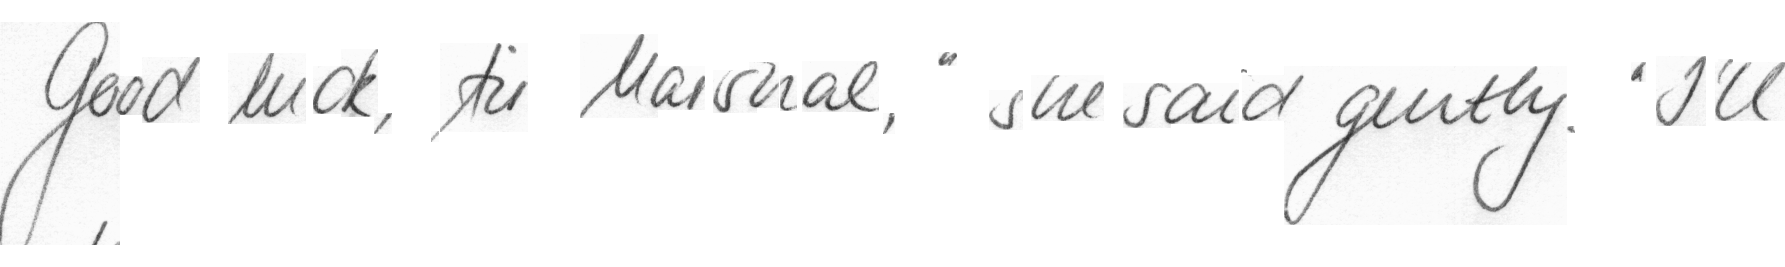 Good luck, Air Marshal," she said gently. "I'll